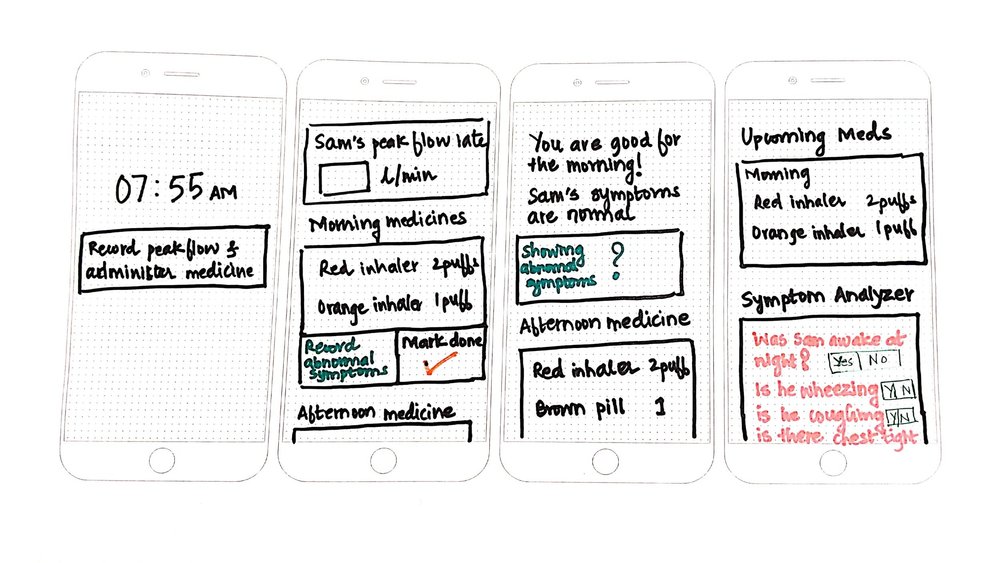 07:55 AM
Record peakflow &
administer medicine
Sam's peak flow late
l/min
Morning medicines
Red inhaler 2 puffs
Orange inhaler 1 puff
Record
abnormal
symptoms
Mark done
Afternoon medicine
You are good for
the morning!
Sam's symptoms
are normal
Showing
abnormal
symptoms
?
Afternoon medicine
Red inhaler 2 puff
Brown pill 1
Upcoming Meds
Morning
Red inhaler 2 puffs
Orange inhaler 1 puff
Symptom Analyzer
Was Sam awake at
night? Yes No
Is he wheezing Y N
is he coughing Y N
is there chest tight